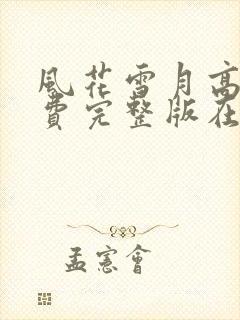 風花雪月高
費完整版在
孟憲會